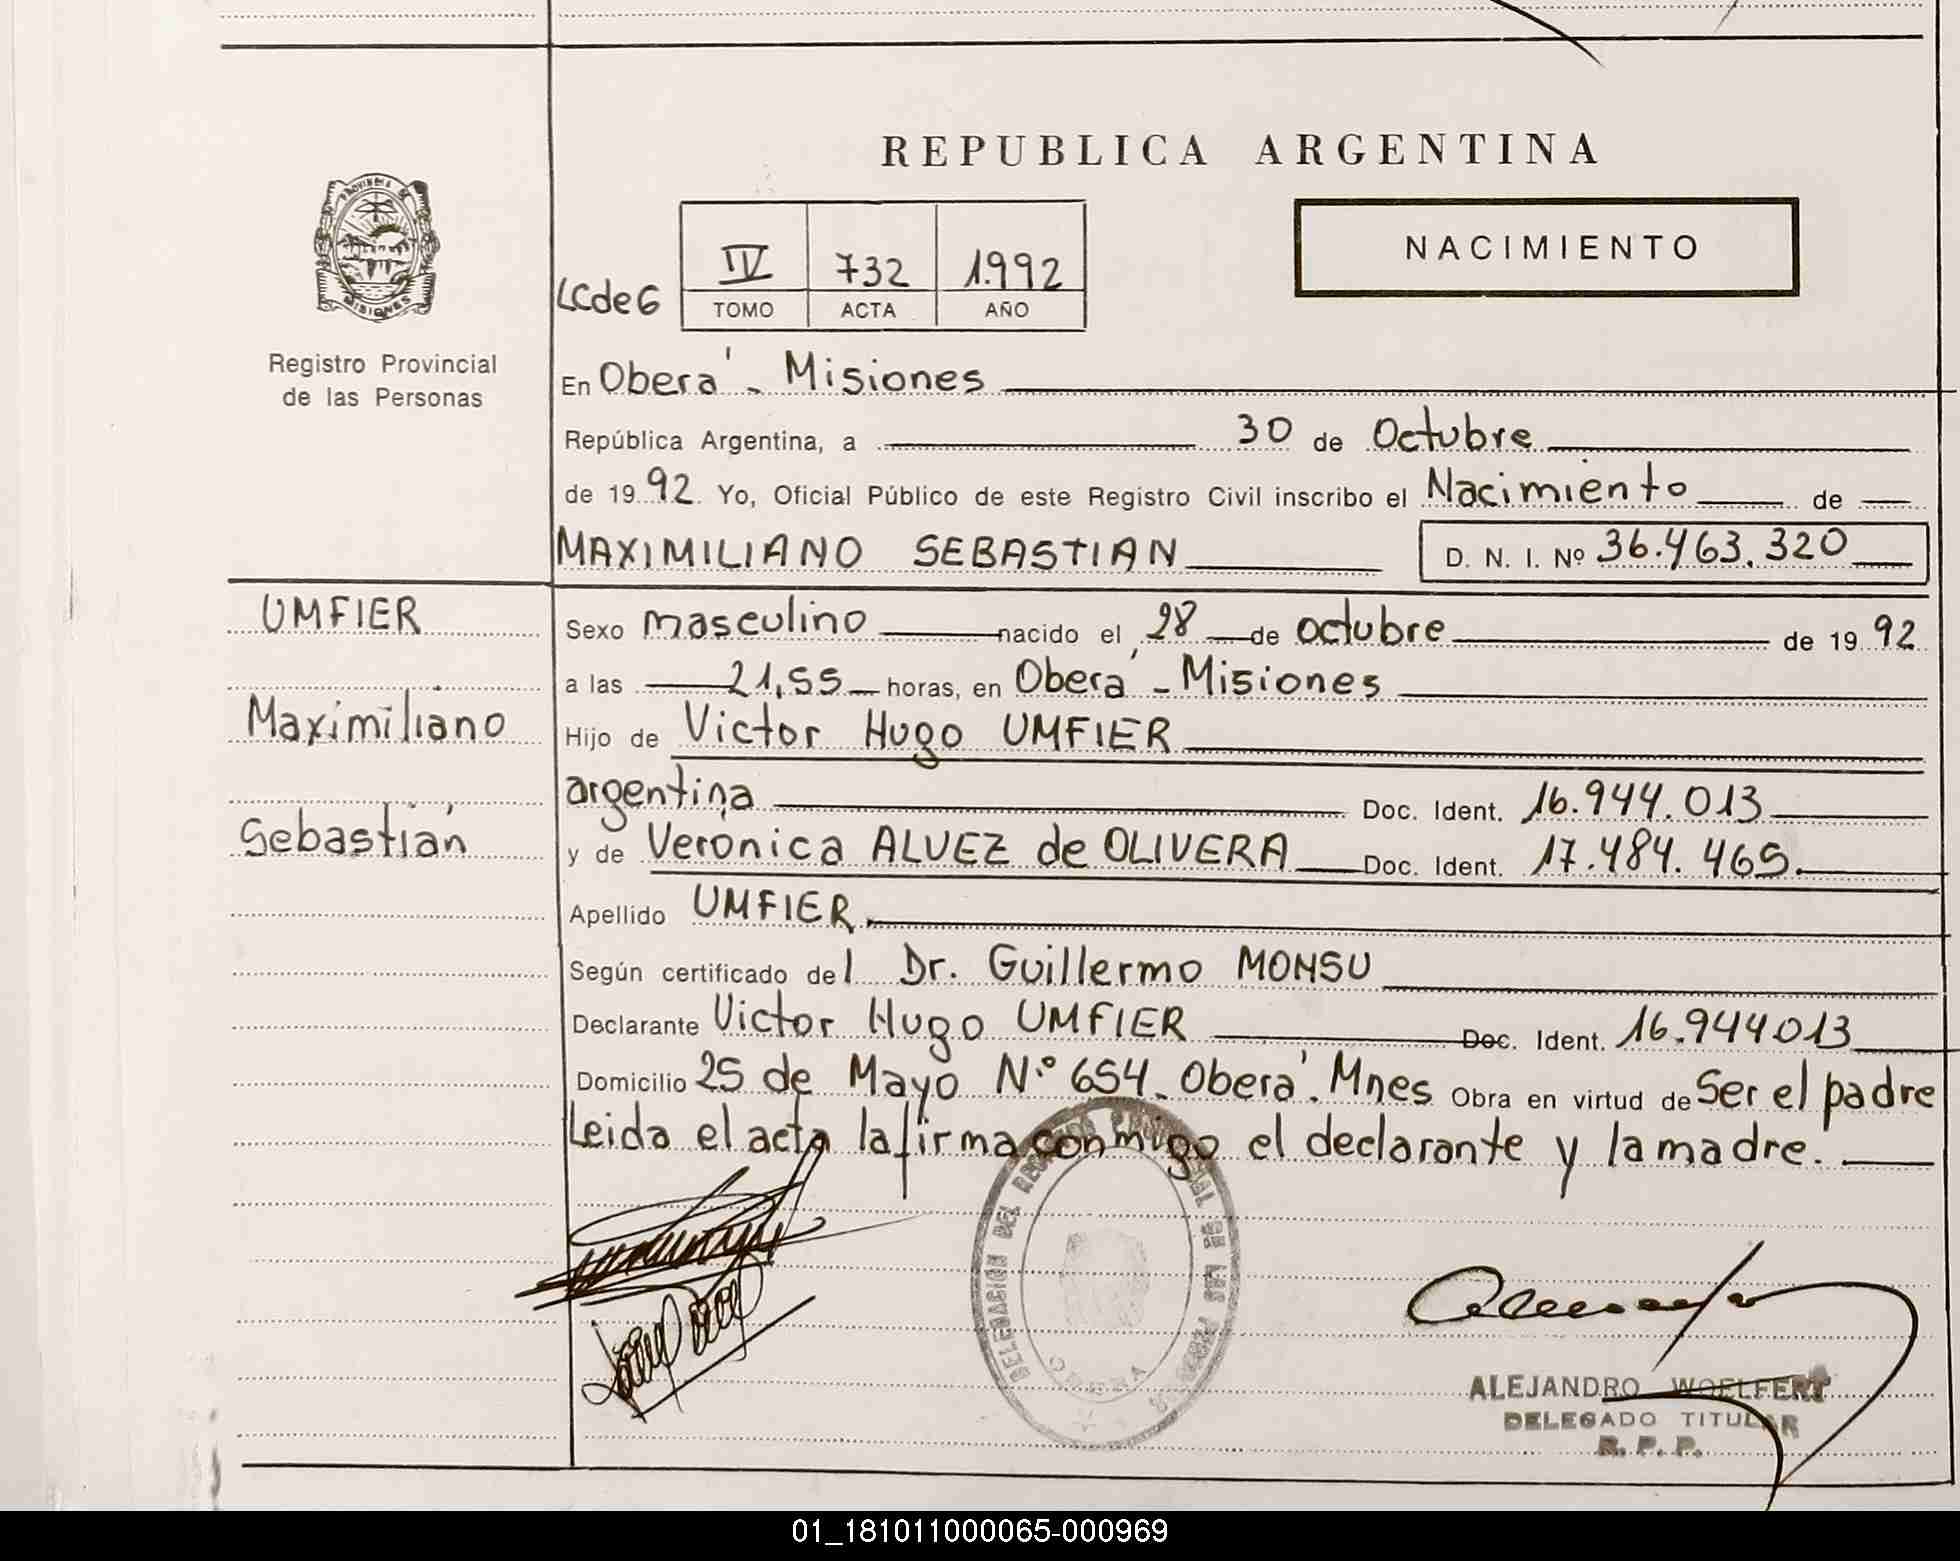 REPUBLICA ARGENTINA
PROVINCIA DE
MISIONES
Registro Provincial
de las Personas
NACIMIENTO
LCde6
IV 732 1.992
TOMO ACTA AÑO
En Oberá - Misiones
República Argentina, a 30 de Octubre
de 1992 Yo, Oficial Público de este Registro Civil inscribo el Nacimiento de
MAXIMILIANO SEBASTIAN D. N. I. Nº 36.463.320
UMFIER
Maximiliano
Sebastián
Sexo masculino nacido el 28 de octubre de 1992
a las 21,55 horas, en Oberá - Misiones
Hijo de Victor Hugo UMFIER
argentina Doc. Ident. 16.944.013
y de Verónica ALVEZ de OLIVERA Doc. Ident. 17.484.465.
Apellido UMFIER
Según certificado del Dr. Guillermo MONSU
Declarante Victor Hugo UMFIER Doc. Ident. 16.944013
Domicilio 25 de Mayo N.º 654. Oberá. Mnes Obra en virtud de Ser el padre
Leida el acta la firma conmigo el declarante y la madre.
DELEGACION DEL REGISTRO PROVINCIAL DE LAS PERSONAS
OBERA
ALEJANDRO WOELFERT
DELEGADO TITULAR
R. P. P.
01_181011000065-000969